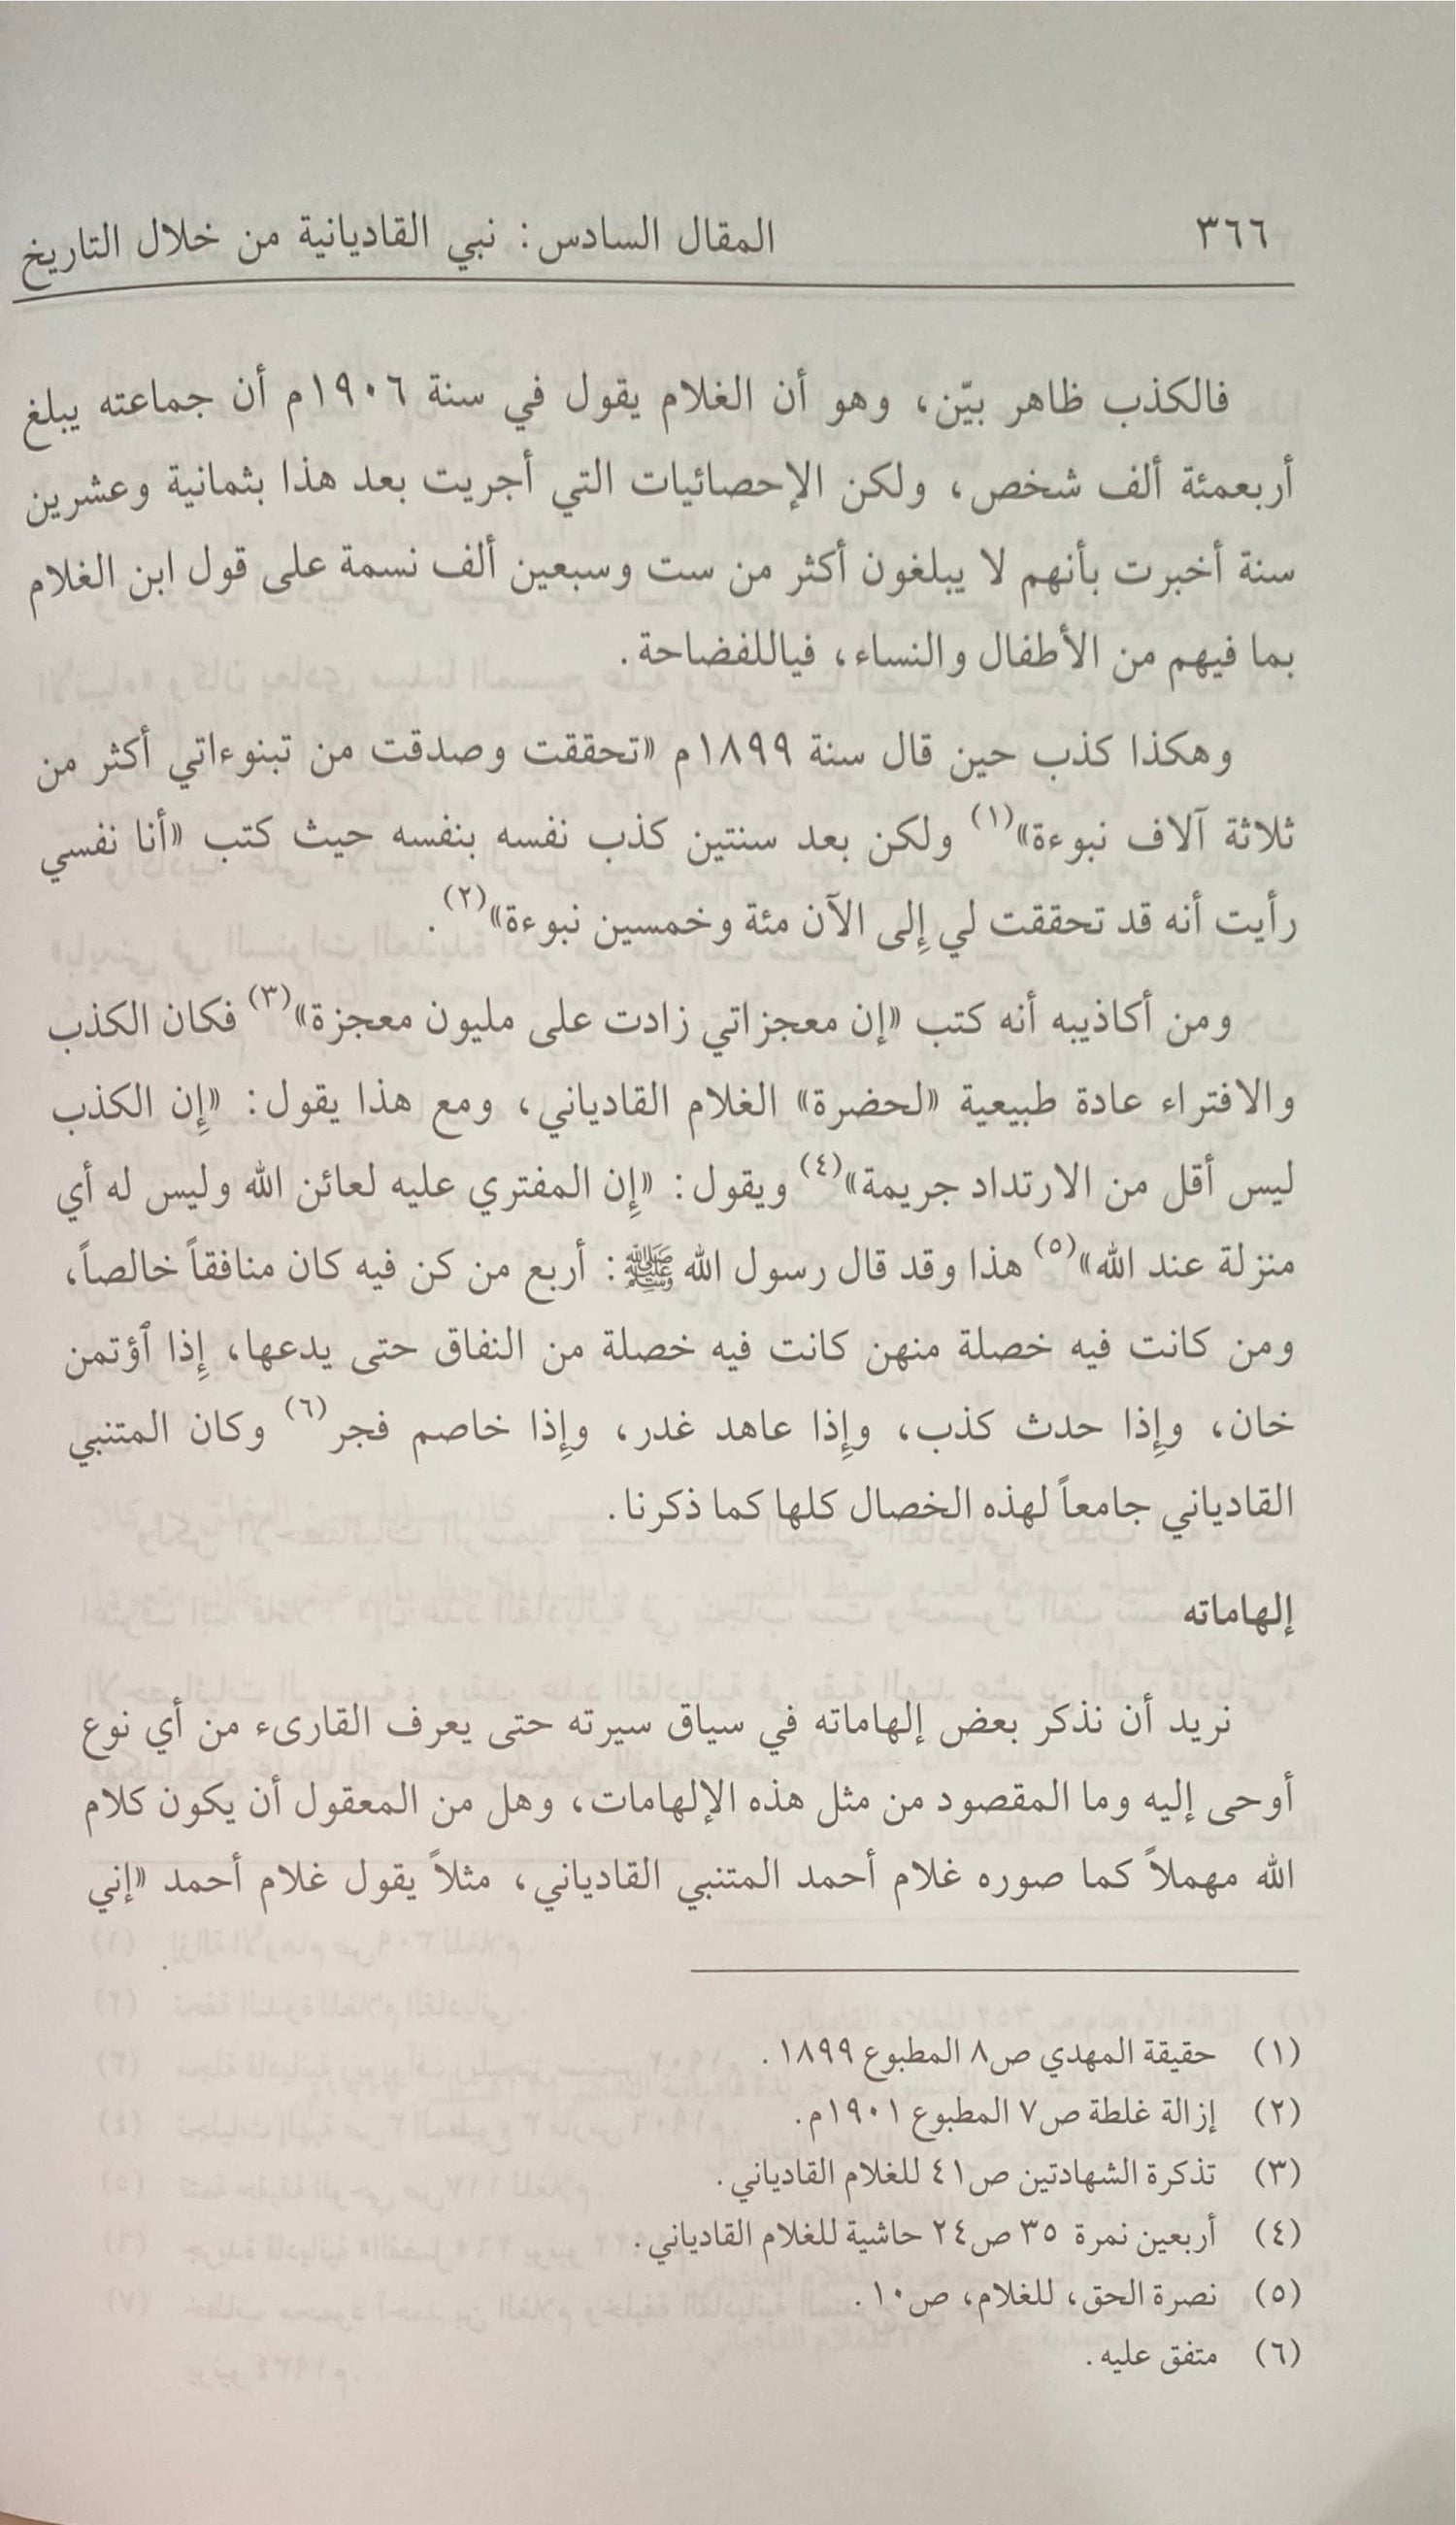 ٣٦٦ المقال السادس: نبي القاديانية من خلال التاريخ
فالكذب ظاهر بيّن، وهو أن الغلام يقول في سنة ١٩٠٦م أن جماعته يبلغ
أربعمئة ألف شخص، ولكن الإحصائيات التي أجريت بعد هذا بثمانية وعشرين
سنة أخبرت بأنهم لا يبلغون أكثر من ست وسبعين ألف نسمة على قول ابن الغلام
بما فيهم من الأطفال والنساء، فياللفضاحة.
وهكذا كذب حين قال سنة ١٨٩٩م «تحققت وصدقت من تبنوءاتي أكثر من
ثلاثة آلاف نبوءة»(١) ولكن بعد سنتين كذب نفسه بنفسه حيث كتب «أنا نفسي
رأيت أنه قد تحققت لي إِلى الآن مئة وخمسين نبوءة»(٢).
ومن أكاذيبه أنه كتب «إن معجزاتي زادت على مليون معجزة»(٣) فكان الكذب
والافتراء عادة طبيعية «لحضرة» الغلام القادياني، ومع هذا يقول: «إِن الكذب
ليس أقل من الارتداد جريمة»(٤) ويقول: «إِن المفتري عليه لعائن الله وليس له أي
منزلة عند الله»(٥) هذا وقد قال رسول الله ﷺ: أربع من كن فيه كان منافقاً خالصاً،
ومن كانت فيه خصلة منهن كانت فيه خصلة من النفاق حتى يدعها، إِذا ٱؤتمن
خان، وإِذا حدث كذب، وإِذا عاهد غدر، وإِذا خاصم فجر(٦) وكان المتنبي
القادياني جامعاً لهذه الخصال كلها كما ذكرنا.
إلهاماته
نريد أن نذكر بعض إلهاماته في سياق سيرته حتى يعرف القارىء من أي نوع
أوحى إليه وما المقصود من مثل هذه الإلهامات، وهل من المعقول أن يكون كلام
الله مهملاً كما صوره غلام أحمد المتنبي القادياني، مثلاً يقول غلام أحمد «إني
(١) حقيقة المهدي ص٨ المطبوع ١٨٩٩.
(٢) إزالة غلطة ص٧ المطبوع ١٩٠١م.
(٣) تذكرة الشهادتين ص٤١ للغلام القادياني.
(٤) أربعين نمرة ٣٥ ص٢٤ حاشية للغلام القادياني.
(٥) نصرة الحق، للغلام، ص١٠.
(٦) متفق عليه.